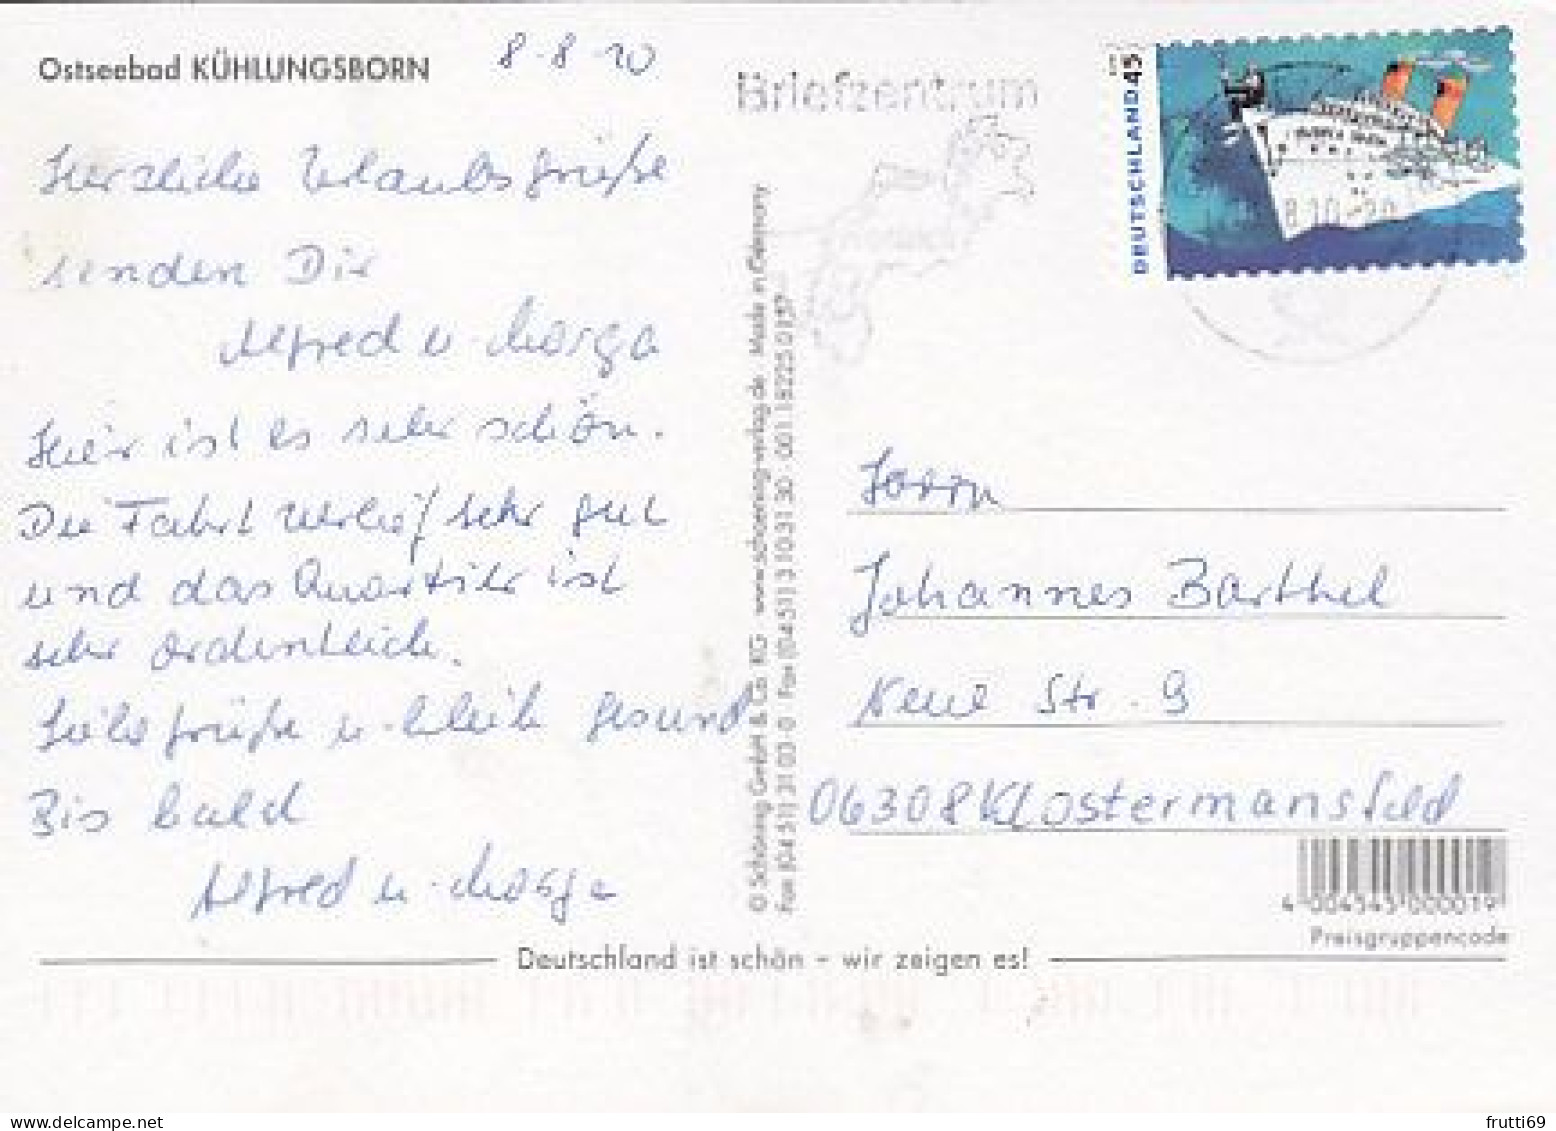 Ostseebad KÜHLUNGSBORN
8-8-10
Herzliche Urlaubsgrüße
senden Dir
Alfred u. Marga
Hier ist es sehr schön.
Die Fahrt verlief sehr gut
und das Quartier ist
sehr ordentlich.
Liebe Grüße u. bleib gesund
Bis bald
Alfred u. Marga
© Schöning GmbH & Co. KG www.schoening-verlag.de Made in Germany
Fon (04 51) 3 10 31 30
Briefzentrum
DEUTSCHLAND 45
8.10-20
Herrn
Johannes Barthel
Neue Str. 9
06308 Klostermansfeld
4 004343 000019
Preisgruppencode
Deutschland ist schön – wir zeigen es!
frutti69